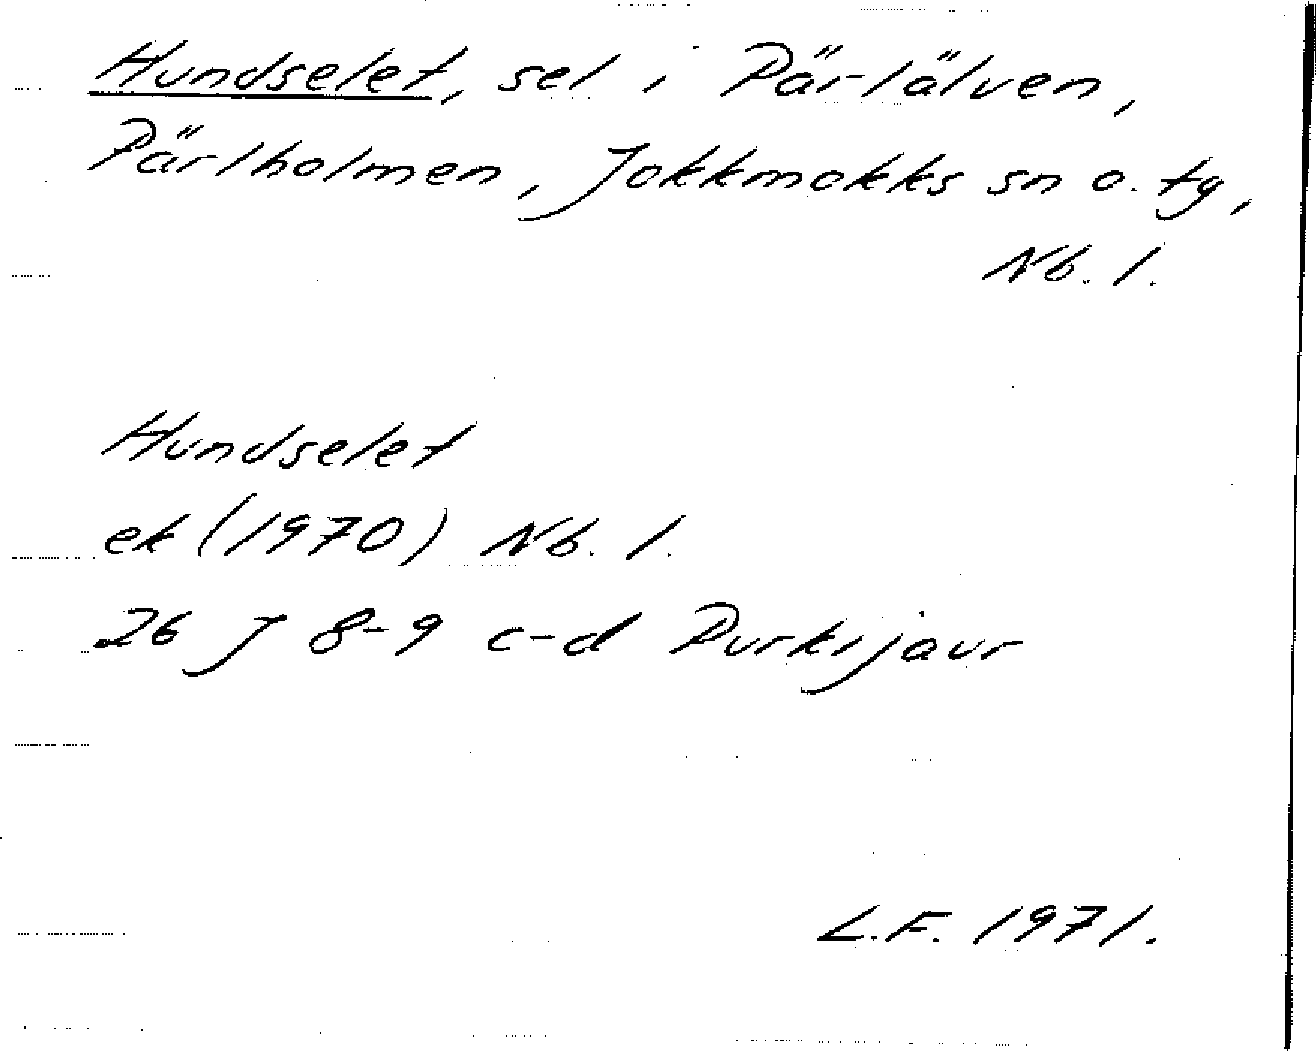 Hundselet, sel i Pärlälven,
Pärlholmen, Jokkmokks sn o. tg,
Nb. l.
Hundselet
ek (1970) Nb. l.
26 J 8-9 c-d Purkijaur
L.F. 1971.